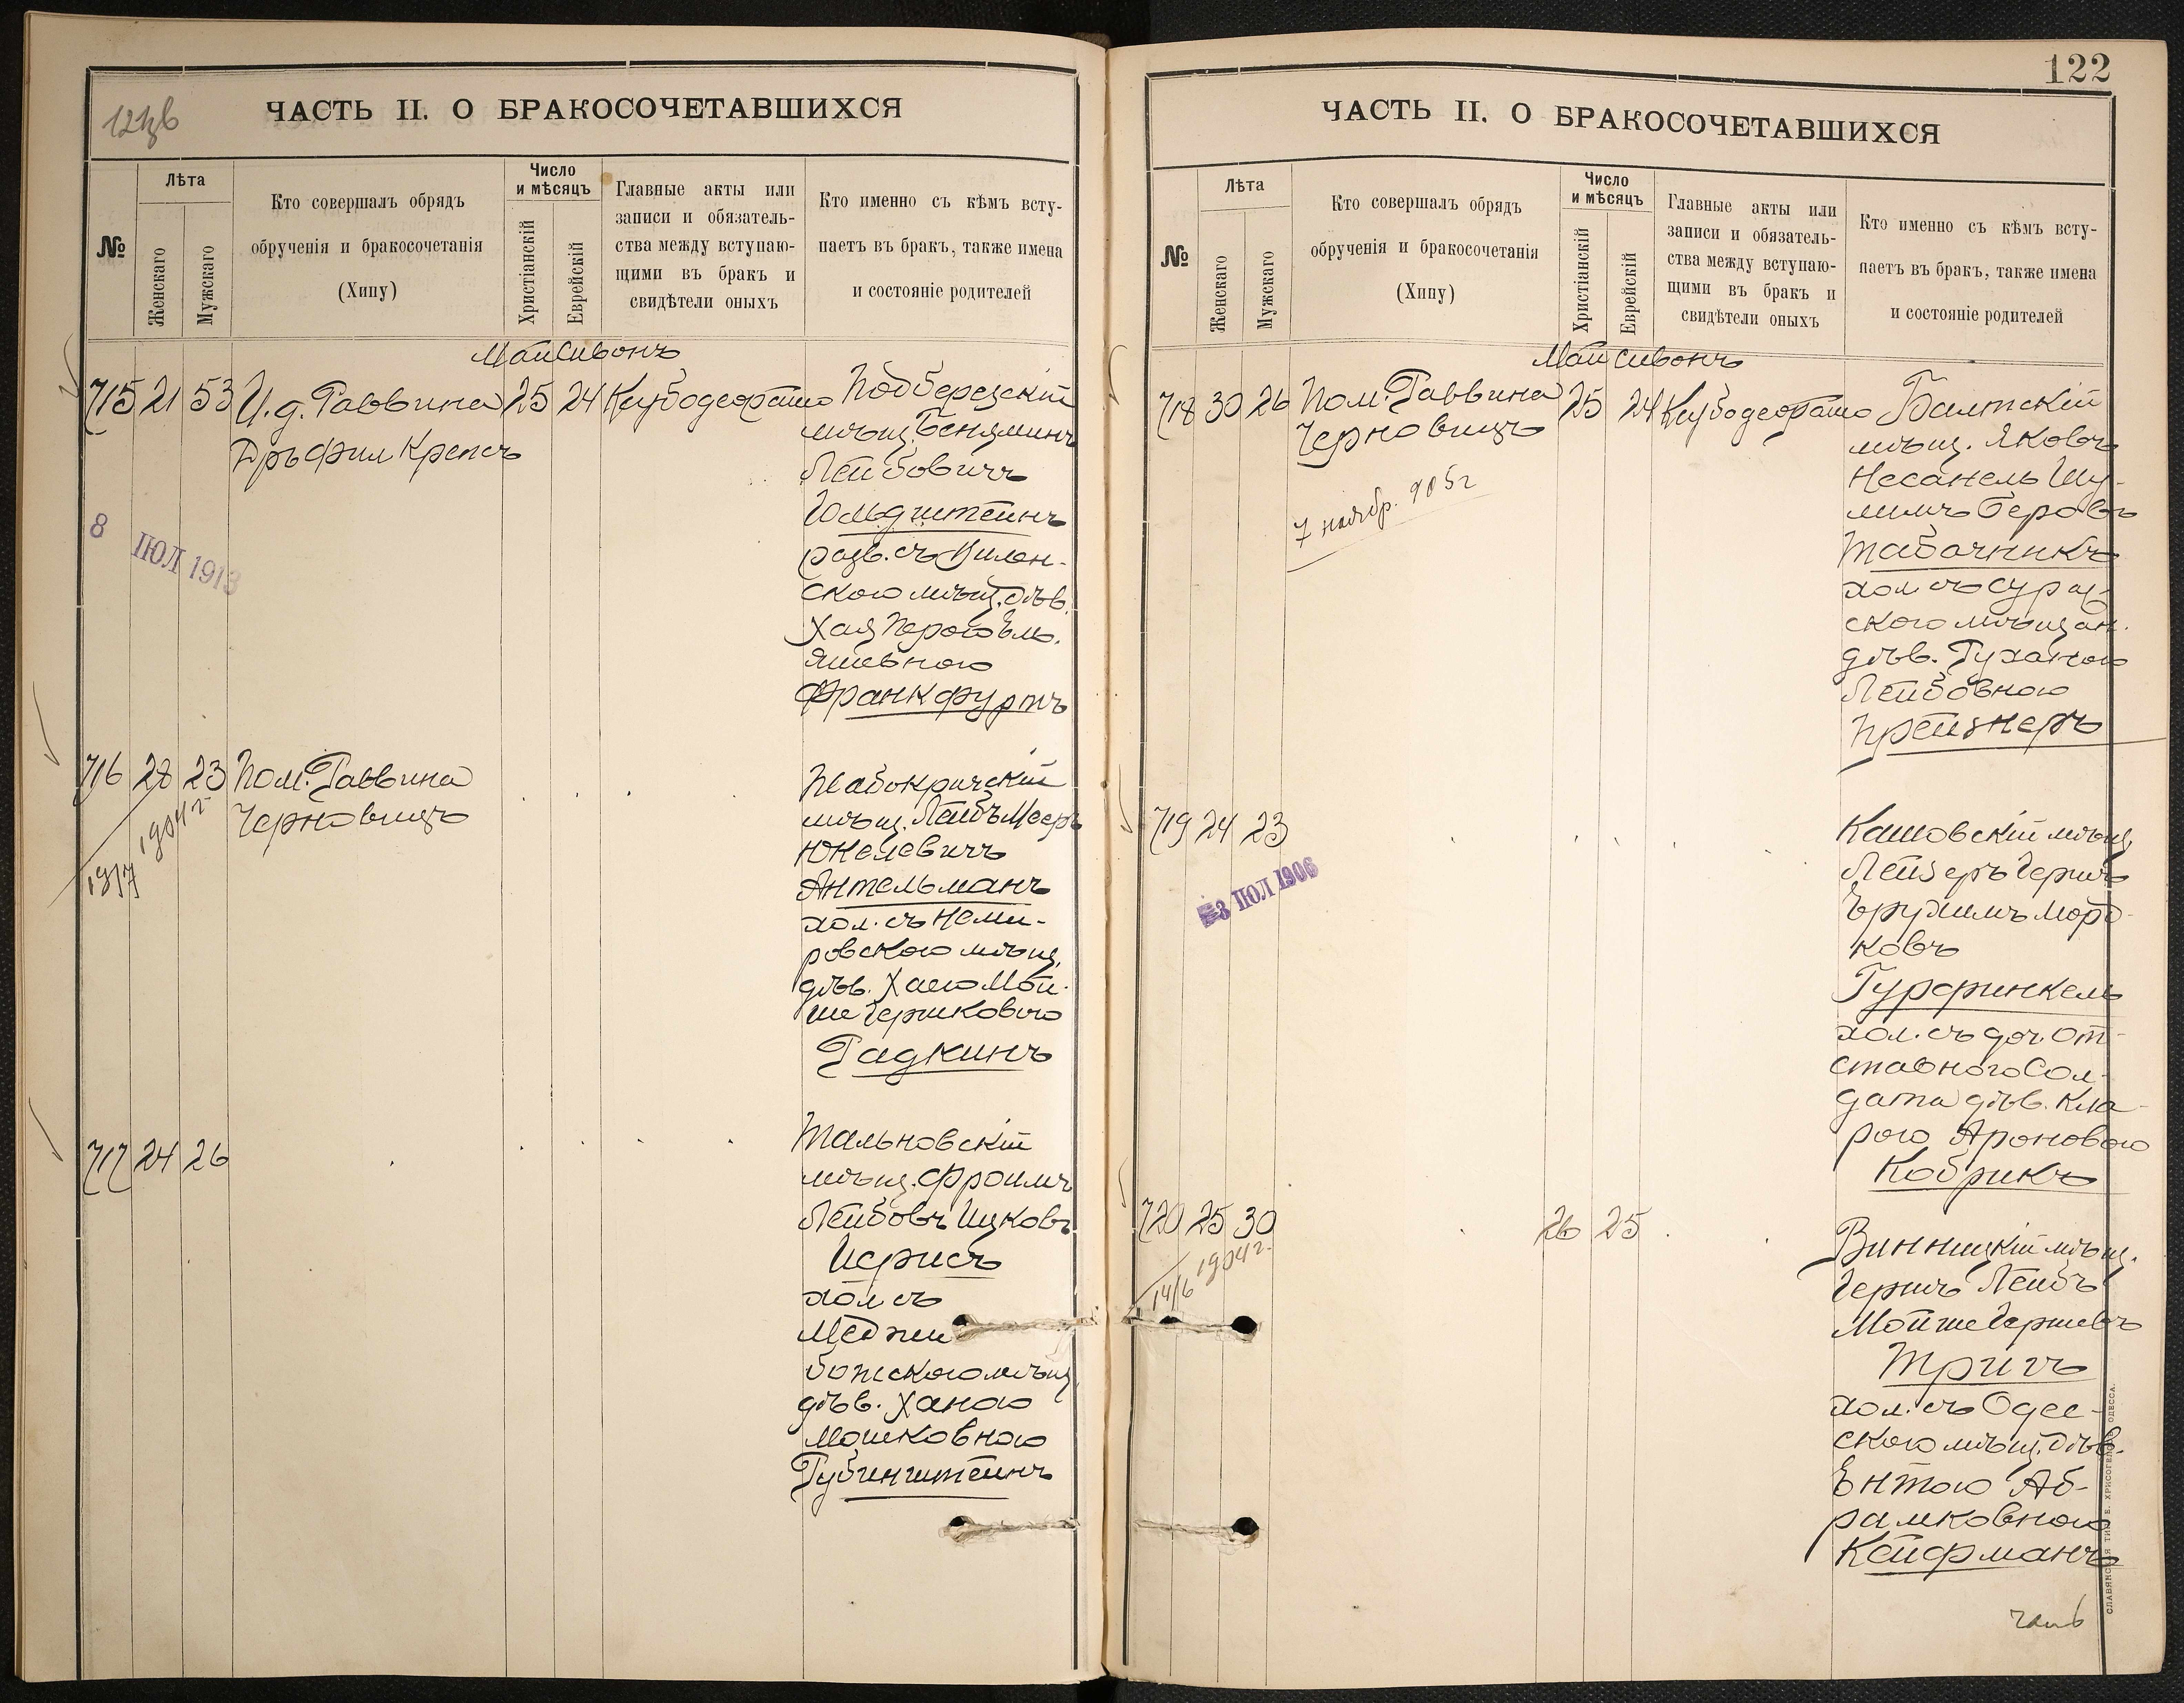 121 об
ЧАСТЬ II. О БРАКОСОЧЕТАВШИХСЯ
№
Лѣта
Женскаго
Мужскаго
Кто совершалъ обрядъ
обрученія и бракосочетанія
(Хипу)
Число
и мѣсяцъ
Христіанскій
Еврейскій
Главные акты или
записи и обязатель-
ства между вступаю-
щими въ бракъ и
свидѣтели оныхъ
Кто именно съ кѣмъ всту-
паетъ въ бракъ, также имена
и состояніе родителей
Май Сивонъ
715 21 53 И. д. Раввина 25 24
Дръ фил Крепсъ
Подберезскій
мѣщ. Беняминъ
Лейбовичъ
Гольдштейнъ
разв. съ Вилен-
скою мѣщ. дѣв.
Хая Перою Эль-
яшевною
Франкфуртъ
8 ІЮЛ 1913
716 28 23 Пом. Раввина
Черновицъ
1904 г
19/7
мѣщ. Лейбъ Меер
Юкелевичъ
Антельманъ
хол. съ Неми-
ровскою мѣщ.
дѣв. Хаею Мой-
ше Гершковою
Радкинъ
717 24 26
Тальновскій
мѣщ. Фроимъ
Лейбовъ Ицковъ
Исрисъ
хол съ
Меджи
божскою мѣщ
дѣв. Ханою
Мошковною
Рубинштейнъ
122
ЧАСТЬ II. О БРАКОСОЧЕТАВШИХСЯ
№
Лѣта
Женскаго
Мужскаго
Кто совершалъ обрядъ
обрученія и бракосочетанія
(Хипу)
Число
и мѣсяцъ
Христіанскій
Еврейскій
Главные акты или
записи и обязатель-
ства между вступаю-
щими въ бракъ и
свидѣтели оныхъ
Кто именно съ кѣмъ всту-
паетъ въ бракъ, также имена
и состояніе родителей
Май Сивонъ
718 30 26 Пом. Раввина 25 24
Черновицъ
7 ноябр. 905 г
Балтскій
мѣщ. Яковъ
Несанель Шу-
лимъ Беровъ
Табачникъ
хол съ Сураж-
скою мѣщан.
дѣв. Руханою
Лейбовною
Прейзнеръ
719 24 23
3 ІЮЛ 1906
Кашовскій мѣщ
Лейзеръ Гершъ
Ерухимъ Морд-
ковъ
Гурфинкель
хол. съ доч. от-
ставного Сол-
дата дѣв. Кла-
рою Ароновою
Кобрикъ
720 25 30 26 25
1904 г.
14/6
Винницкій мѣщ.
Гершъ Лейбъ
Мойше Гершевъ
Тригъ
хол. съ Одес-
скою мѣщ. дѣв.
Ентою Аб-
рамковною
Койфманъ
СЛАВЯНСКАЯ ТИП. Е. ХРИСОГЕЛОСЪ ОДЕССА.